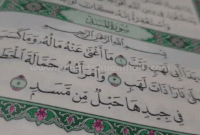 سُورَةُ المَسَد
بِسْمِ اللَّهِ الرَّحْمَٰنِ الرَّحِيمِ
يَدَا أَبِي لَهَبٍ وَتَبَّ ۝ مَا أَغْنَىٰ عَنْهُ مَالُهُ وَمَا كَسَبَ
نَارًا ذَاتَ لَهَبٍ ۝ وَامْرَأَتُهُ حَمَّالَةَ الْحَطَبِ
فِي جِيدِهَا حَبْلٌ مِّن مَّسَدٍ ۝